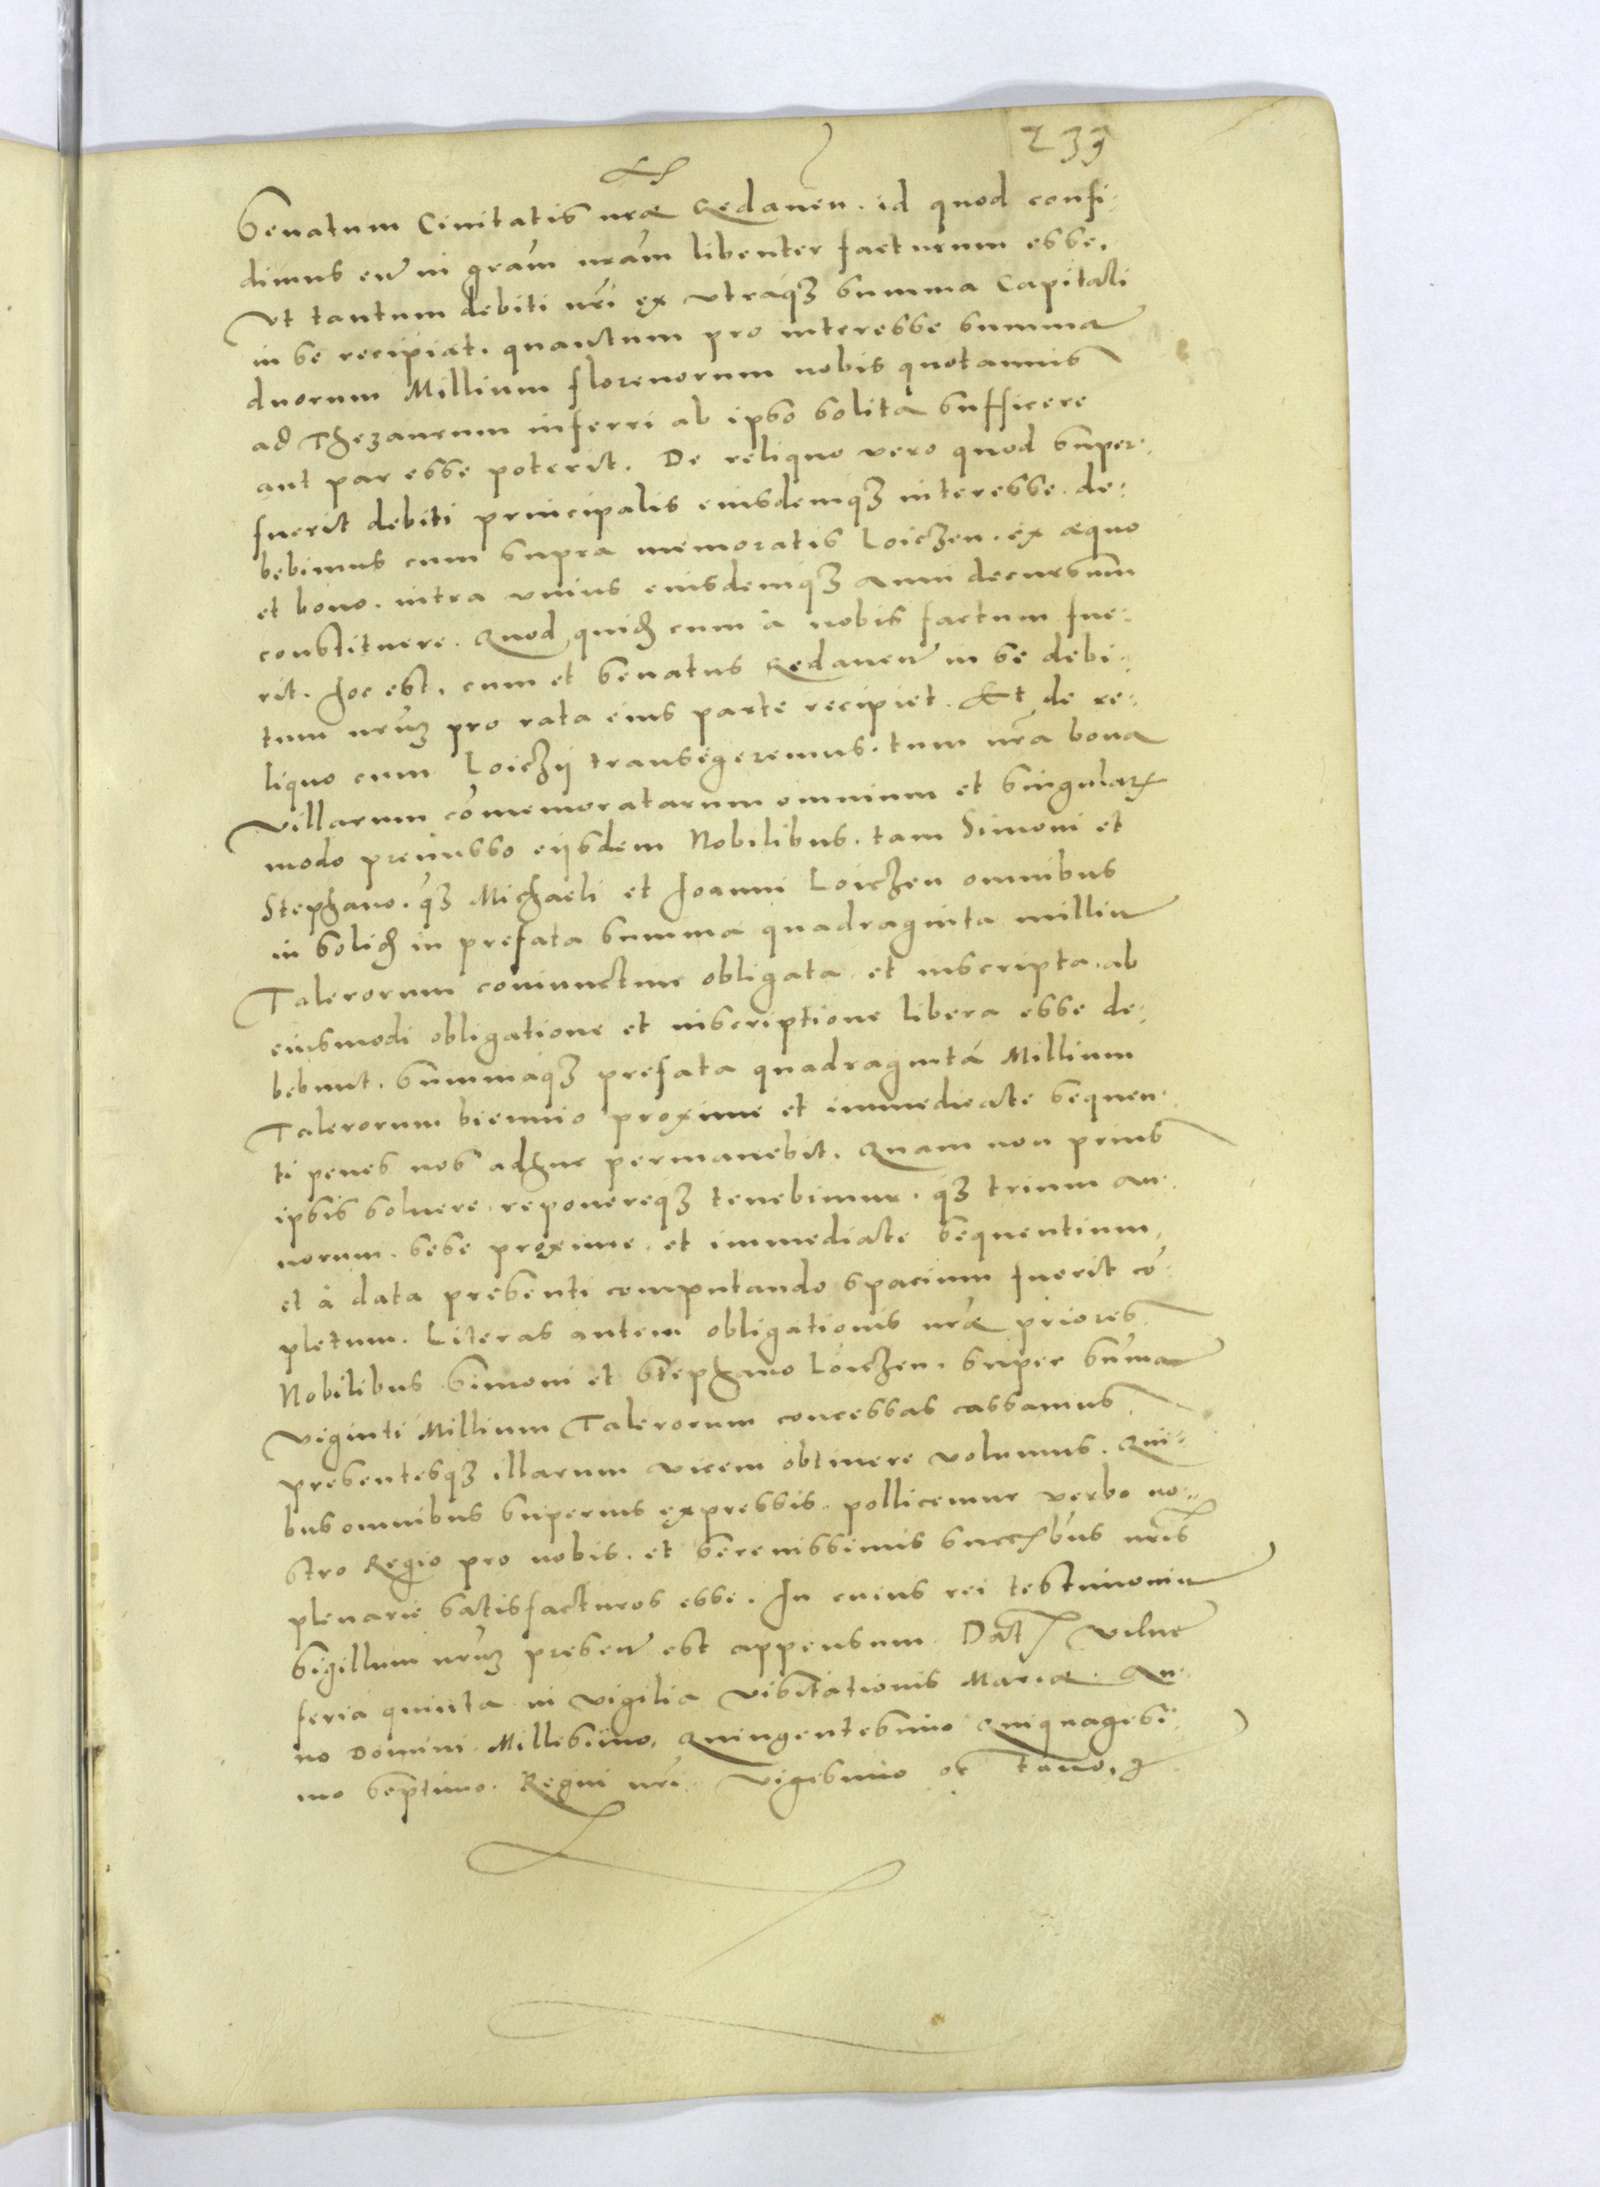 233
Senatum Civitatis nrae Gedanen. id quod confi-
dimus eum in gram nram libenter facturum esse,
Vt tantum debiti nri ex vtraqз summa Capitali
in se recipiat, quantum pro interesse summae
duorum Millium florenorum nobis quotannis
ad Thezaurum inferri ab ipso solita sufficere
aut par esse poterit. De reliquo vero quod super-
fuerit debiti principalis eiusdemqз interesse de-
bebimus cum supra memoratis Loiczen. ex aequo
et bono. intra vnius eiusdemqз anni decursum
constituere. Quod quid cum à nobis factum fue-
rit. Hoc est, cum et Senatus Gedanen in se debi-
tum nrum pro rata eius parte recipiet. Et de re-
liquo cum Loiczij transegeremus. tum nra bona
Villarum comemoratarum omnium et singular
modo premisso eijsdem Nobilibus. tam Simoni et
Stephano. qз Michaeli et Joanni Loiczen omnibus
in solid in prefata summa quadraginta millium
Talerorum coniunctim obligata et inscripta. ab
eiusmodi obligatione et inscriptione libera esse de-
bebunt. Summaqз prefata quadraginta Millium
Talerorum biennio proxime et immediate sequen-
ti penes nos adhuc permanebit. Quam non prius
ipsis soluere. reponereqз tenebimur. qз trium an-
norum. sese proxime. et immediate sequentium,
et à data presenti computando spacium fuerit co-
pletum. Literas autem obligationis nrae priores
Nobilibus Simoni et Stephano Loiczen. super suma
Viginti Millium Talerorum concessas cassamus
presentesqз illarum vicem obtinere volumus. Qui-
bus omnibus superius expressis. pollicemur verbo no-
stro Regio pro nobis. et Serenissimis succbus nris
plenarie satisfacturos esse. In cuius rei testimonium
Sigillum nrum presen est appensum. Dat Vilnae
feria quinta in vigilia Visitationis Mariae. An-
no Domini Millesimo, Quingentesimo Quiquagesi-
mo septimo. Regni nri Vigesimo oc tauo.